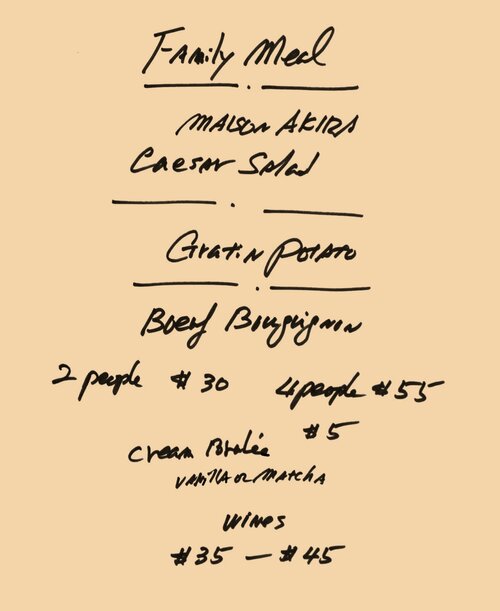 Family Meal
MAISON AKIRA
Caesar Salad
Gratin Potato
Boeuf Bourguignon
2 people $30 4 people $55
$5
Cream Brulée
Vanilla or Matcha
Wines
$35 — $45